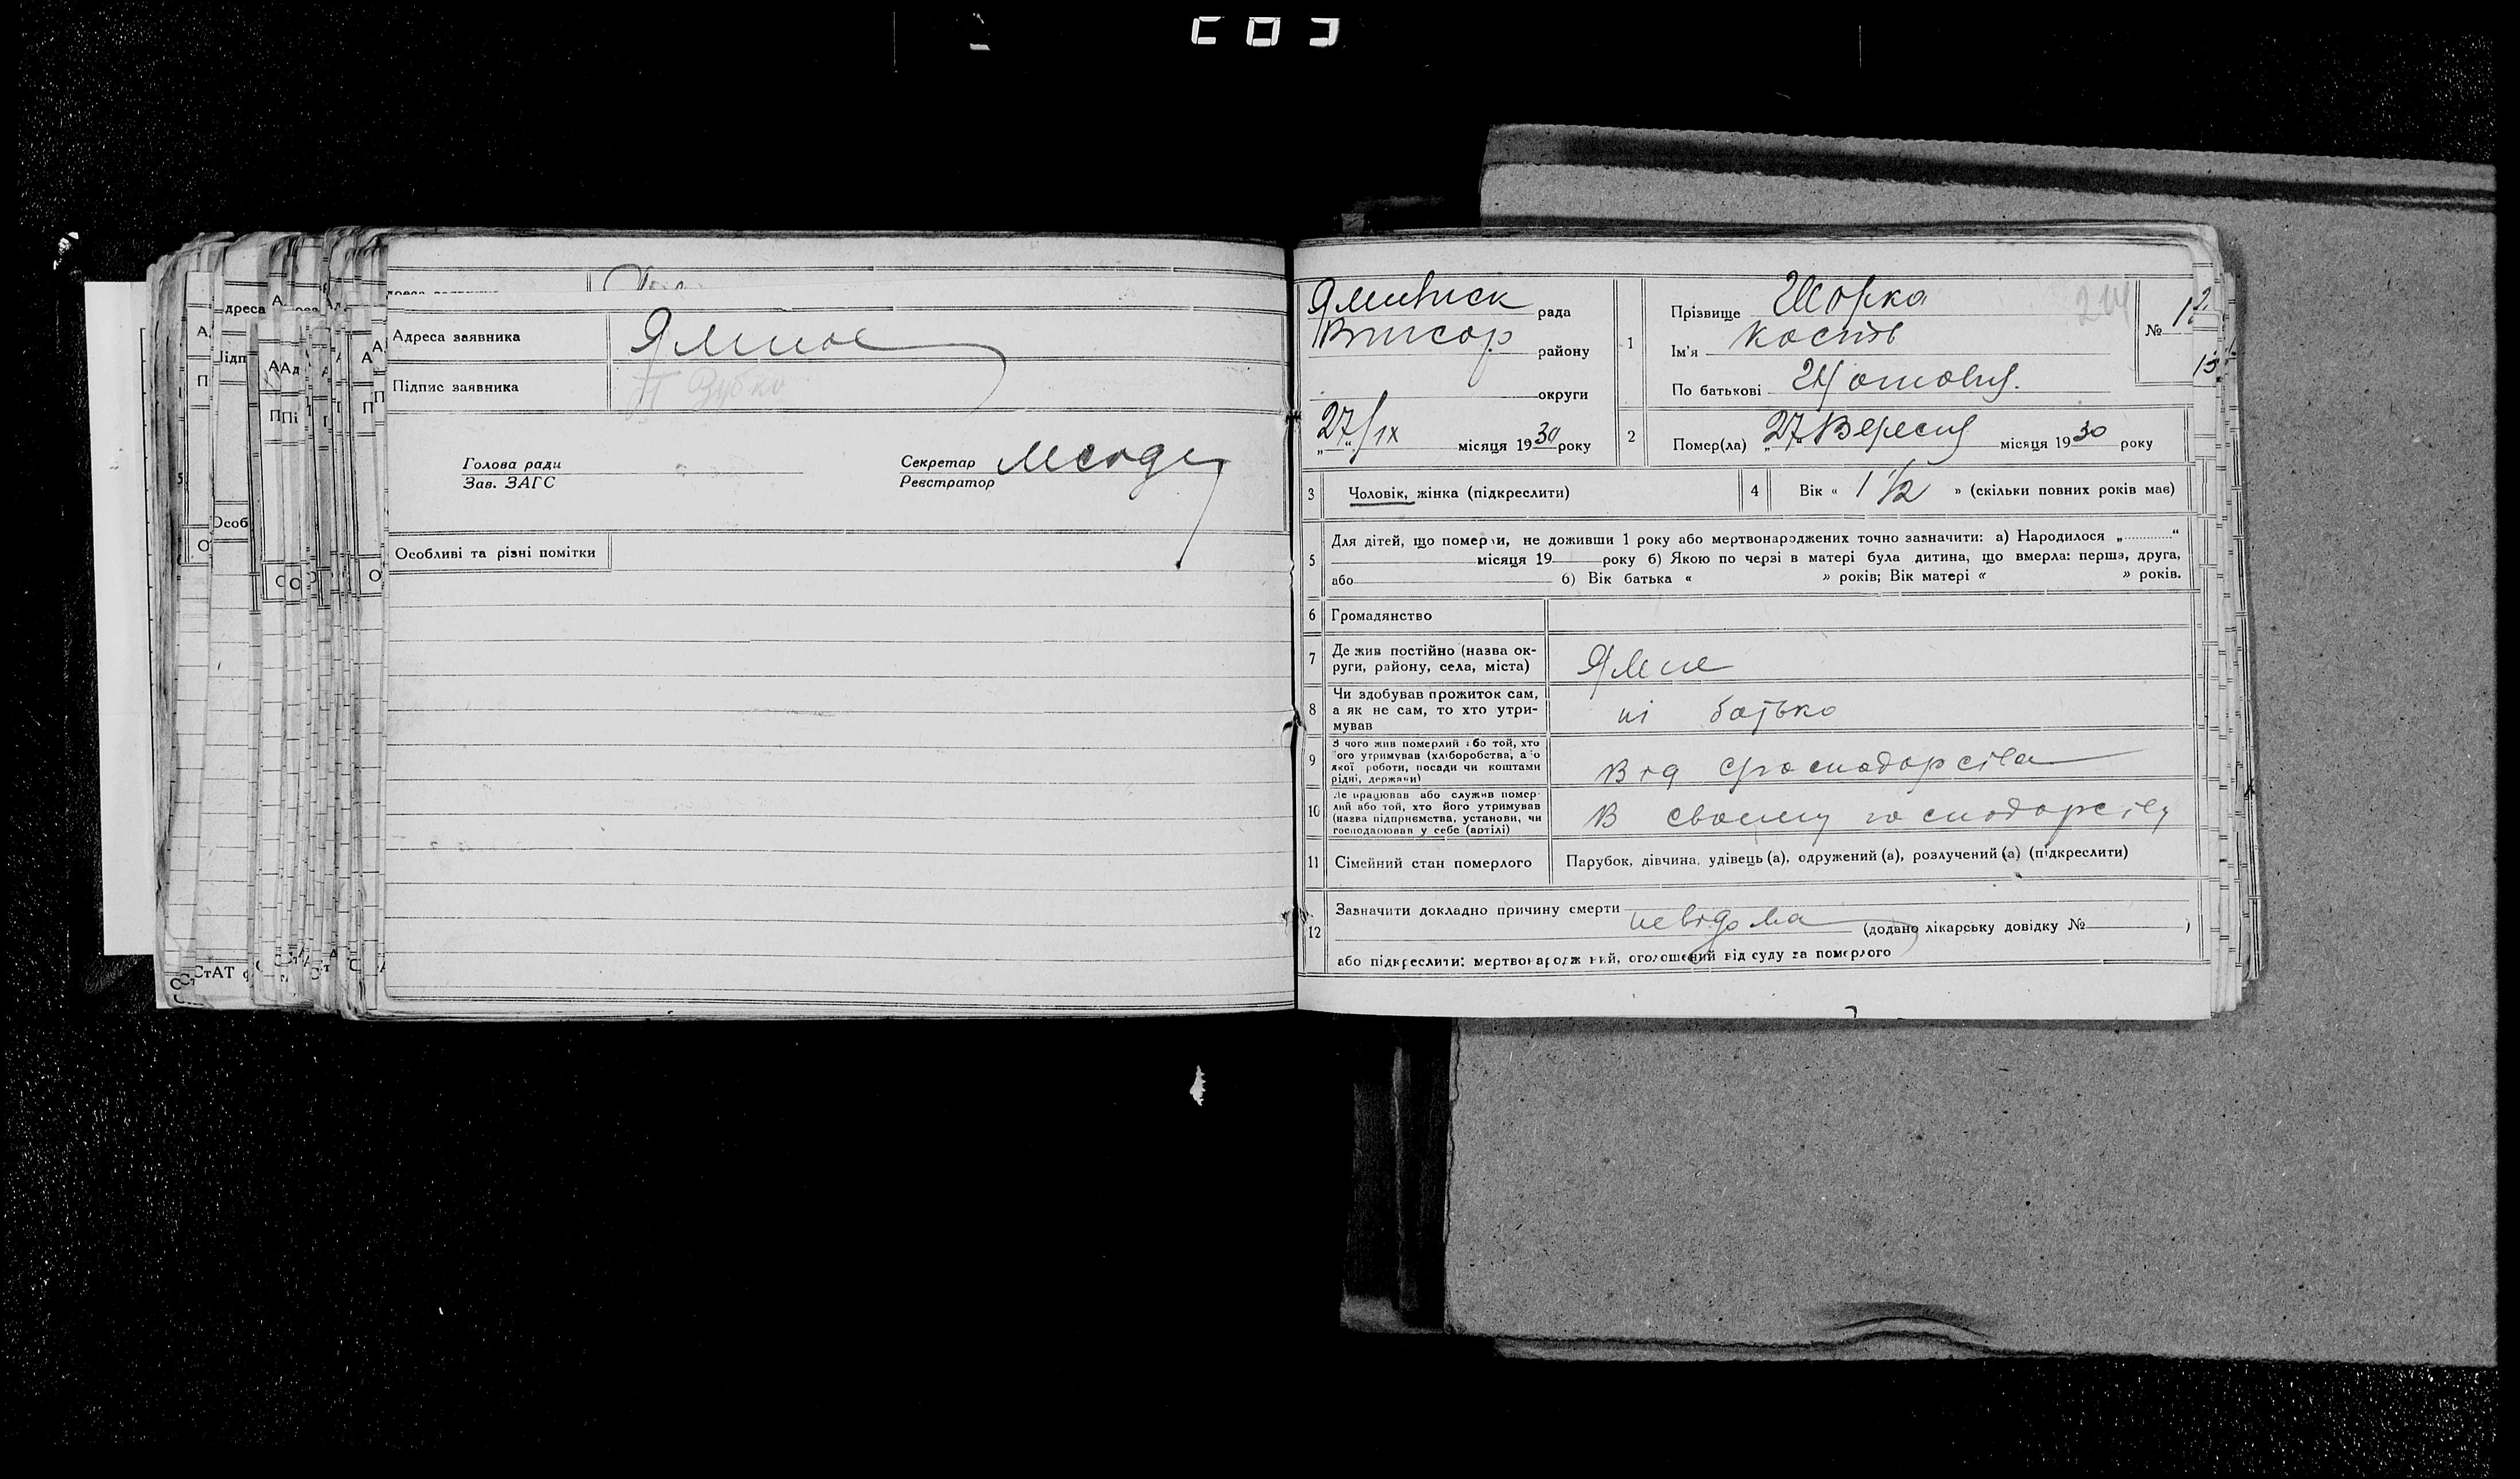 Адреса заявника Ямное
Підпис заявника П Зубко
Голова ради
Зав. ЗАГС
Секретар
Реєстратор
Особливі та різні помітки
рада
району
округи
27/ІХ місяця 1930 року
1
Прізвище Шорка
Ім'я Кость
По батькові
№ 12
2
Помер(ла) „27 Вересня місяця 1930 року
3 Чоловік, жінка (підкреслити)
4 Вік « 1 1/2 » (скільки повних років має)
5 Для дітей, що померли, не доживши 1 року або мертвонароджених точно зазначити: а) Народилося „ “
місяця 19 року б) Якою по черзі в матері була дитина, що вмерла: перша, друга,
або б) Вік батька « » років; Вік матері « » років.
6 Громадянство
7 Де жив постійно (назва ок-
руги, району, села, міста)
Ямне
8 Чи здобував прожиток сам,
а як не сам, то хто утри-
мував
ні батько
9 З чого жив померлий або той, хто
його утримував (хліборобства, або
якої роботи, посади чи коштами
рідні, держави)
Від господарства
10 Де працював або служив помер-
лий або той, хто його утримував
(назва підприємства, установи, чи
господарював у себе (артілі)
В своему господарстві
11 Сімейний стан померлого
Парубок, дівчина, удівець (а), одружений (а), розлучений (а) (підкреслити)
12 Зазначити докладно причину смерти
невідома (додано лікарську довідку № )
або підкреслити: мертвонароджений, оголошений від суду за померлого